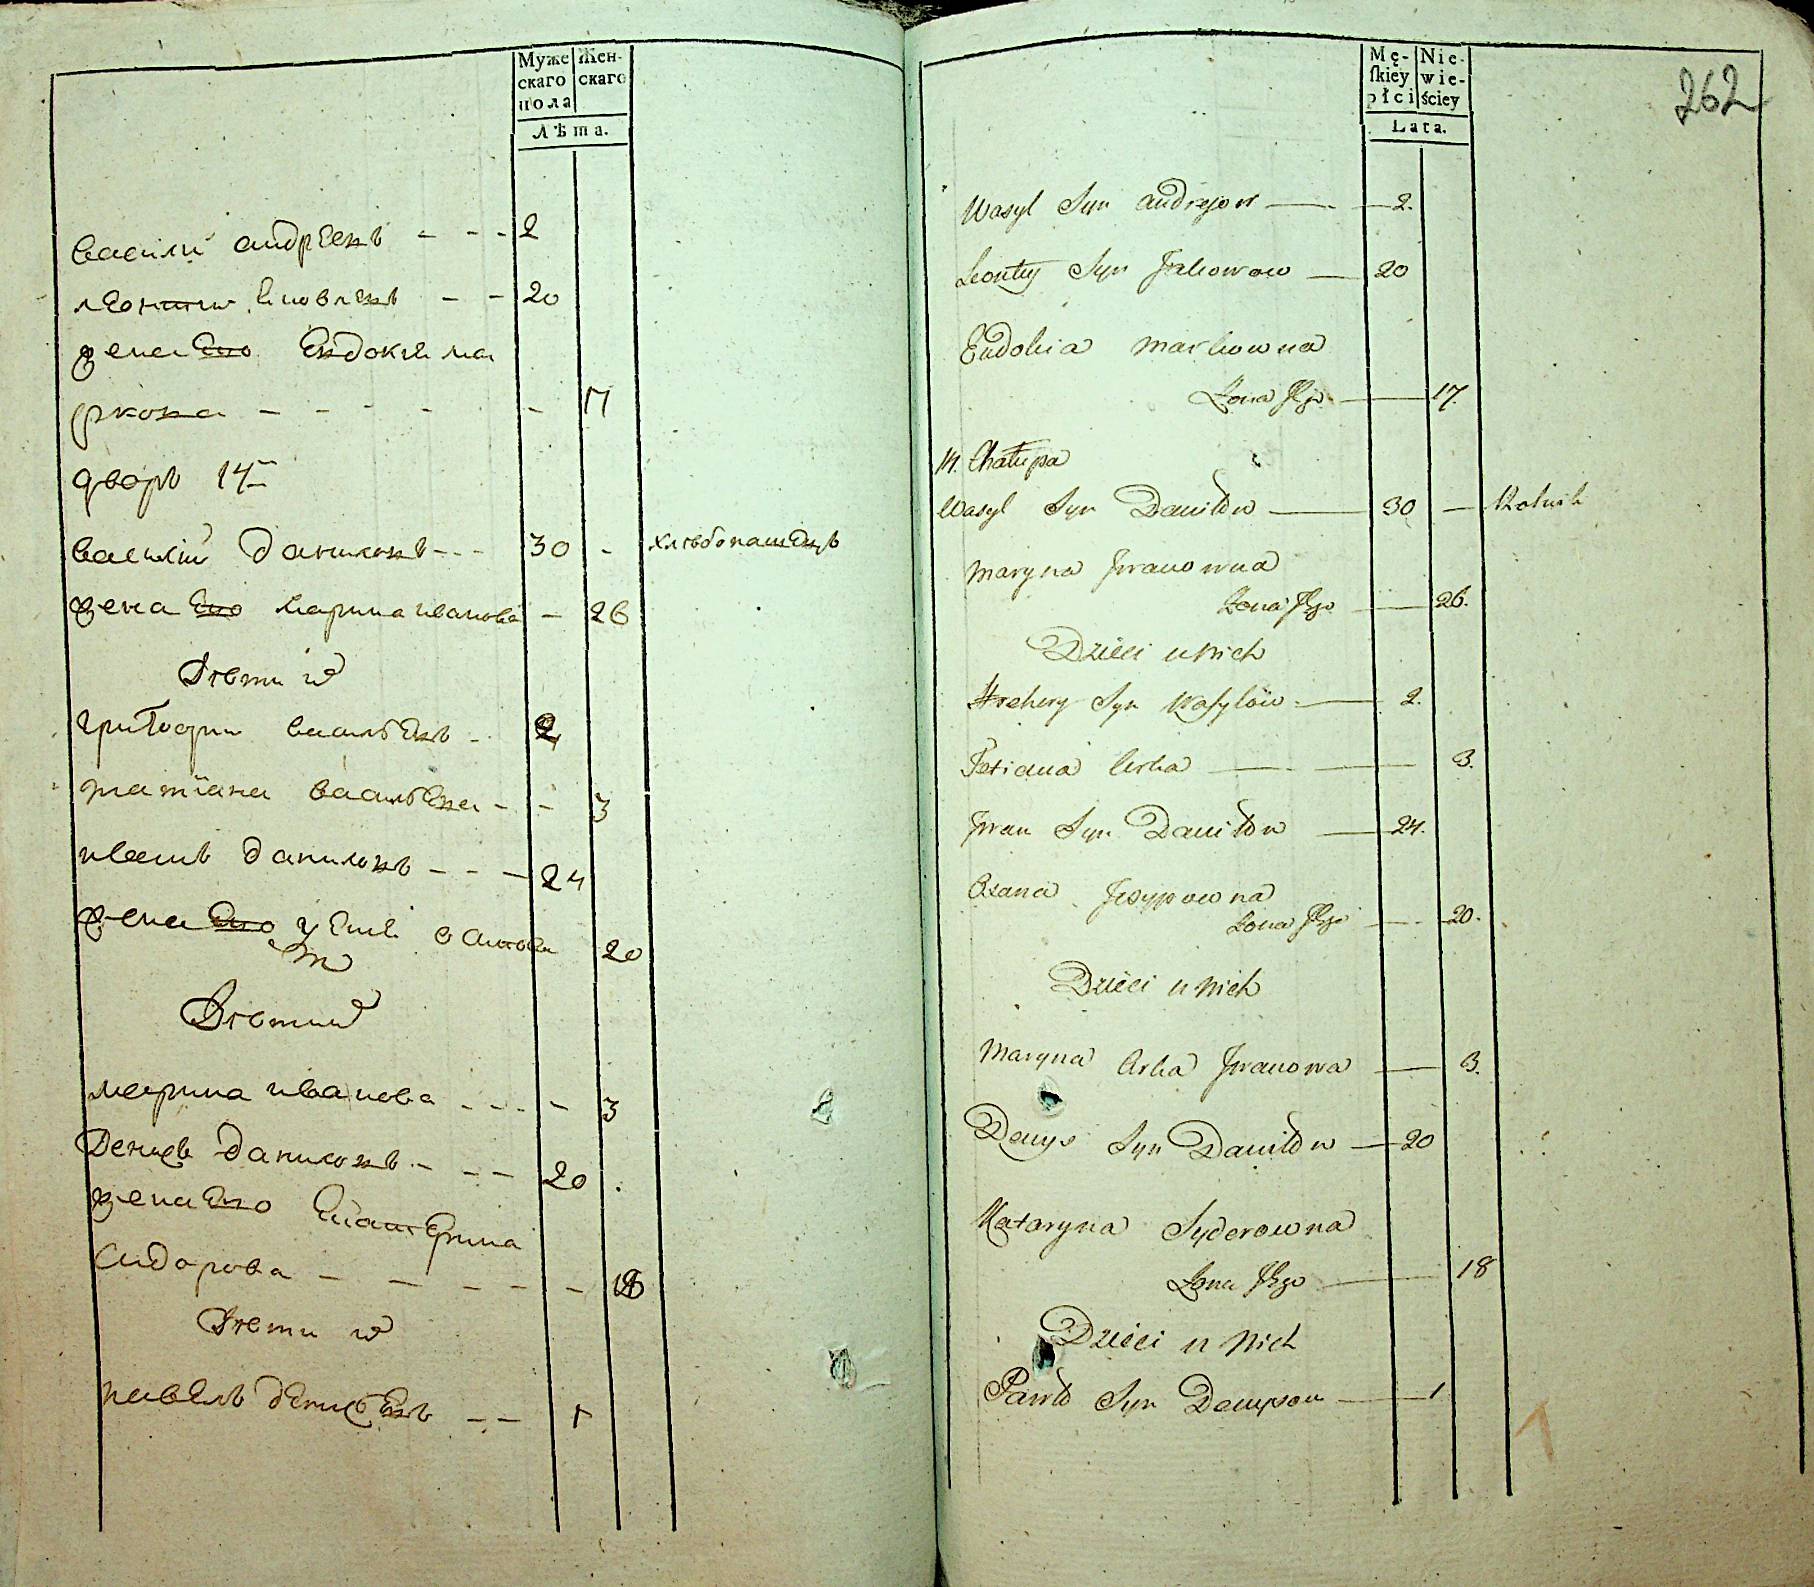 Муже
скаго
пола
Жен-
скаго
Лѣта.
василий андрѣевъ - - - 2
леонтий яковлевъ - - 20
жена ево Евдокия ма
ркова - - - - - 17
дворъ 14й
василий даниловъ - - - 30 - хлѣбопашецъ
жена ево марина иванова - 26
Дѣти их
григории васильевъ - 2
татїана васильева - - 3
иванъ даниловъ - - - 24
жена ево 20
Дѣти их
марина иванова - - - - 3
Денисъ даниловъ - - - 20
жена ево Екатерина
Сидорова - - - - - - 18
Дѣти их
павелъ денисьевъ - - 1
Mę-
skiey
płci
Nie-
wie-
ściey
Lata.
262
Wasyl Syn Andrejow — 2.
Leonty Syn Jakowow — 20
Eudokia Markowna
Zona Jego — 17.
14. Chałupa
Wasyl Syn Daniłow — 30 — Rolnik
Maryna Jwanowna
Zona Jego — 26.
Dzieci u Nich
Hrehory Syn Wasylow — 2.
Tetiana Corka — 3.
Jwan Syn Daniłow — 24.
Jesypowna
Zona Jego — 20.
Dzieci u Nich
Maryna Corka Jwanowa — 3.
Denys Syn Daniłow — 20
Kataryna Syderowna
Zona Jego — 18
Dzieci u Nich
Pawło Syn Denysow — 1